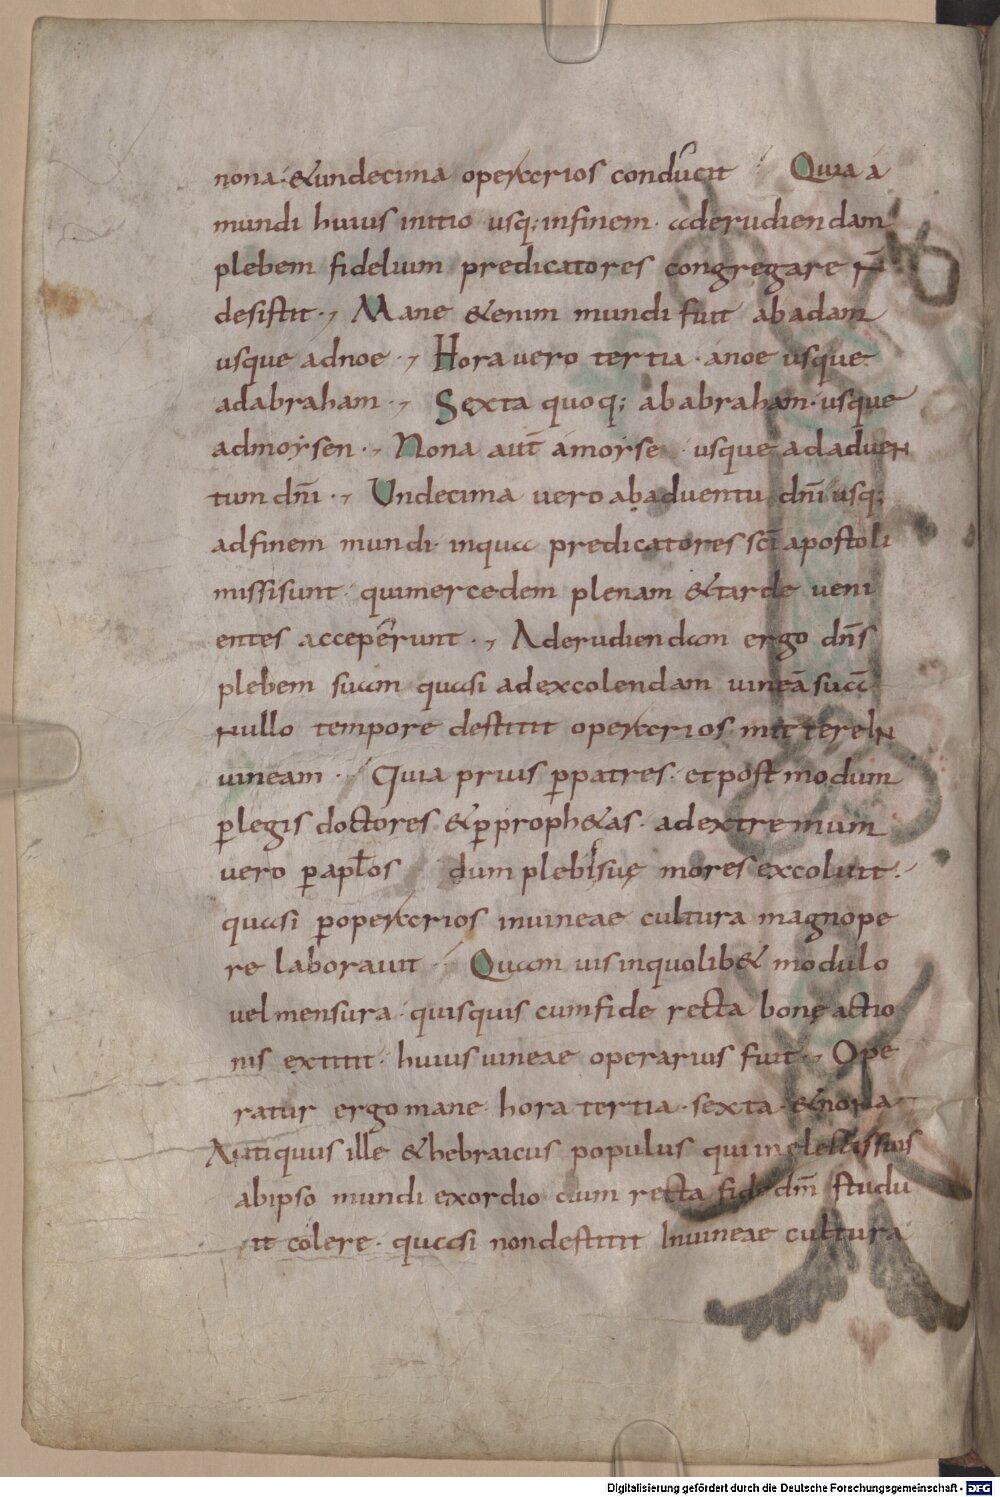 nona · &undecima operarios conducit Quia a
mundi huius initio usq; infinem · aderudiendam
plebem fidelium predicatores congregare n̄
desistit · Mane &enim mundi fuit abadam
usque adnoe · Hora vero tertia · anoe usque
adabraham · Sexta quoq; ababraham · usque
admoysen · Nona aut̄ amoyse · usque adaduen
tum dn̄i · Undecima vero abadventu dn̄i usq;
adfinem mundi · inqua predicatores sc̄i apostoli
missisunt · quimercedem plenam &tarde veni
entes acceperunt · Aderudiendam ergo dn̄s
plebem suam quasi adexcolendam vineā suā
Nullo tempore destitit operarios mittere In
uineam · Quia prius p̄patres · et post modum
p̄legis doctores &p̄proph&as · adextremum
vero p̄ apl̄os dum plebis suę mores excoluit ·
quasi p̄operarios invineae cultura magnope
re laborauit · Quam vis inquolib& modulo
vel mensura · quisquis cumfide recta bonę actio
nis extitit · huius vineae operarius fuit · Ope
ratur ergo mane · hora tertia · sexta · &nona
Antiquus ille &hebraicus populus qui inelectis suis
abipso mundi exordio dum recta fide dm̄ studu
it colere · quasi nondestitit Inuineae cultura
Digitalisierung gefördert durch die Deutsche Forschungsgemeinschaft - DFG